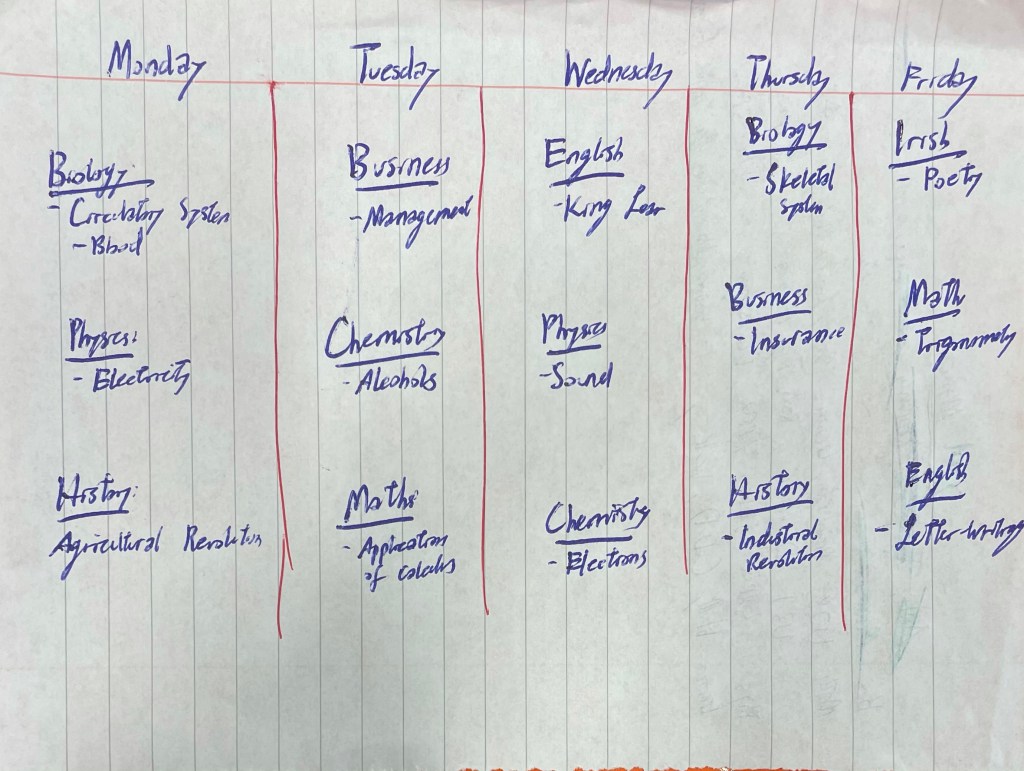 Monday
Biology:
- Circulatory System
- Blood
Physics:
- Electricity
History:
Agricultural Revolution
Tuesday
Business
- Management
Chemistry
- Alcohols
Maths:
- Application
of Calculus
Wednesday
English
- King Lear
Physics
- Sound
Chemistry
- Electrons
Thursday
Biology
- Skeletal
System
Business
- Insurance
History
- Industrial
Revolution
Friday
Irish
- Poetry
Math
- Trigonometry
English
- Letter-writing